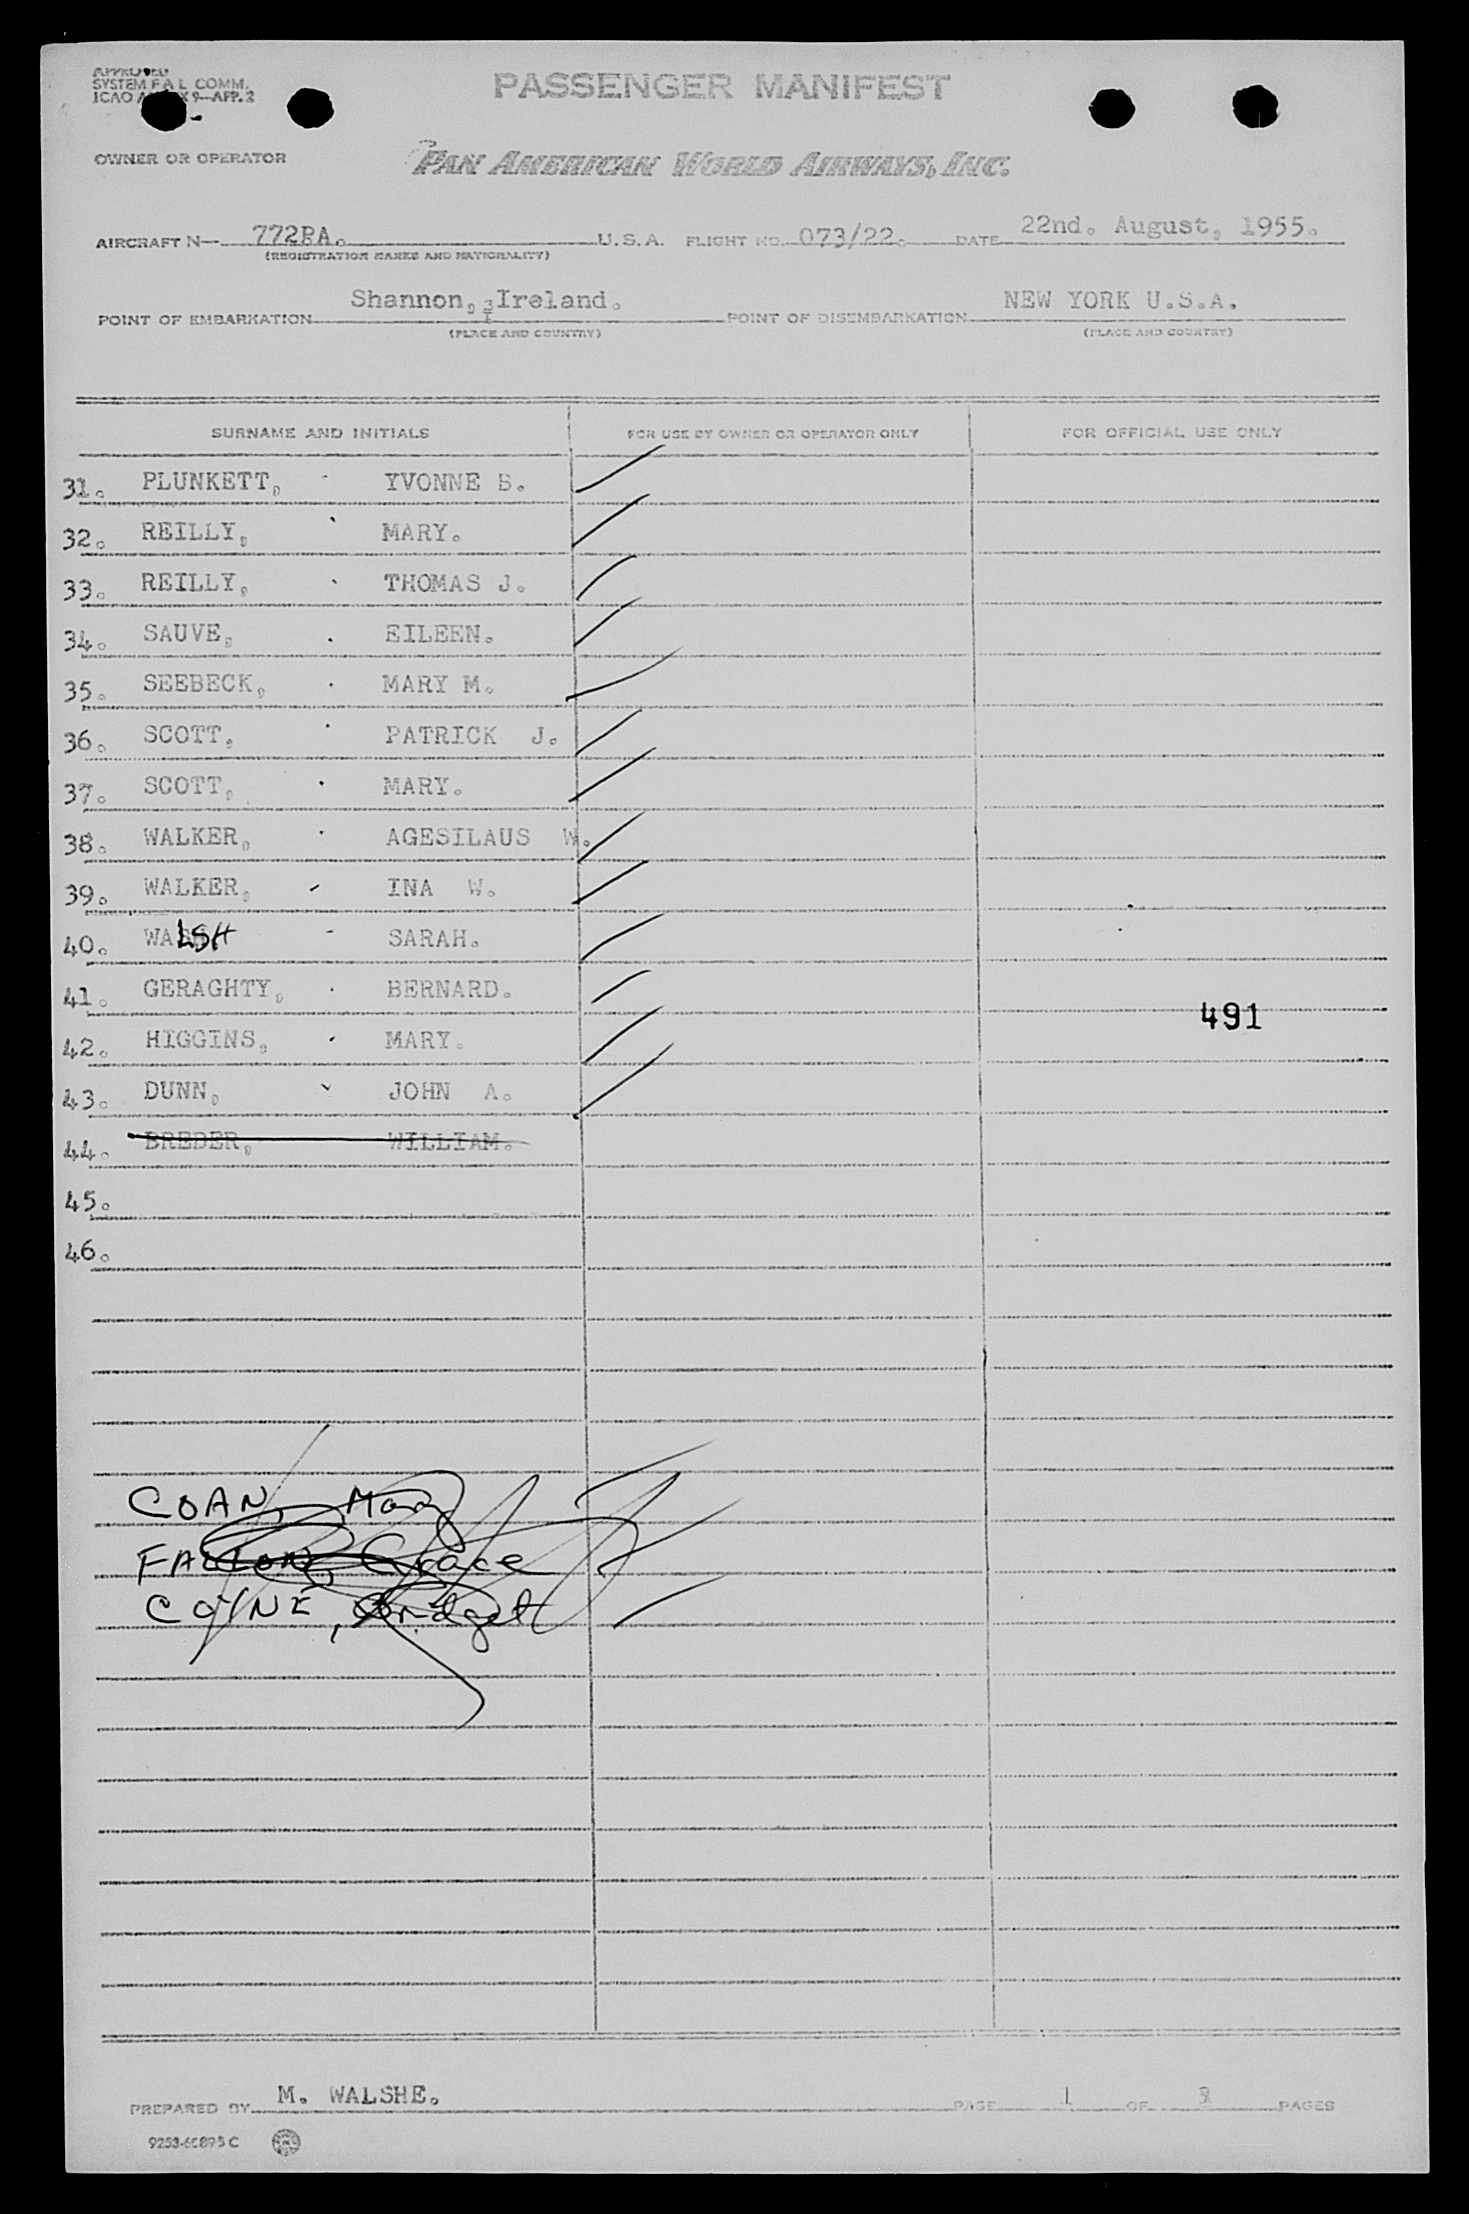 APPROVED
SYSTEM F A L COMM.
ICAO ANNEX 9—APP. 2
PASSENGER MANIFEST
OWNER OR OPERATOR
PAN AMERICAN WORLD AIRWAYS, INC.
AIRCRAFT N— 772PA. U.S.A. FLIGHT NO. 073/22. DATE 22nd. August, 1955.
(REGISTRATION MARKS AND NATIONALITY)
POINT OF EMBARKATION Shannon, Ireland. POINT OF DISEMBARKATION NEW YORK U.S.A.
(PLACE AND COUNTRY) (PLACE AND COUNTRY)
SURNAME AND INITIALS FOR USE BY OWNER OR OPERATOR ONLY FOR OFFICIAL USE ONLY
31. PLUNKETT, YVONNE B.
32. REILLY, MARY.
33. REILLY, THOMAS J.
34. SAUVE, EILEEN.
35. SEEBECK, MARY M.
36. SCOTT, PATRICK J.
37. SCOTT, MARY.
38. WALKER, AGESILAUS W.
39. WALKER, INA W.
40. WALSH SARAH.
41. GERAGHTY, BERNARD.
491
42. HIGGINS, MARY.
43. DUNN, JOHN A.
44. BREDER, WILLIAM.
45.
46.
COAN, Mary
FALLON, Grace
COYNE, Bridget
PREPARED BY M. WALSHE. PAGE 1 OF PAGES
9253-60895 C